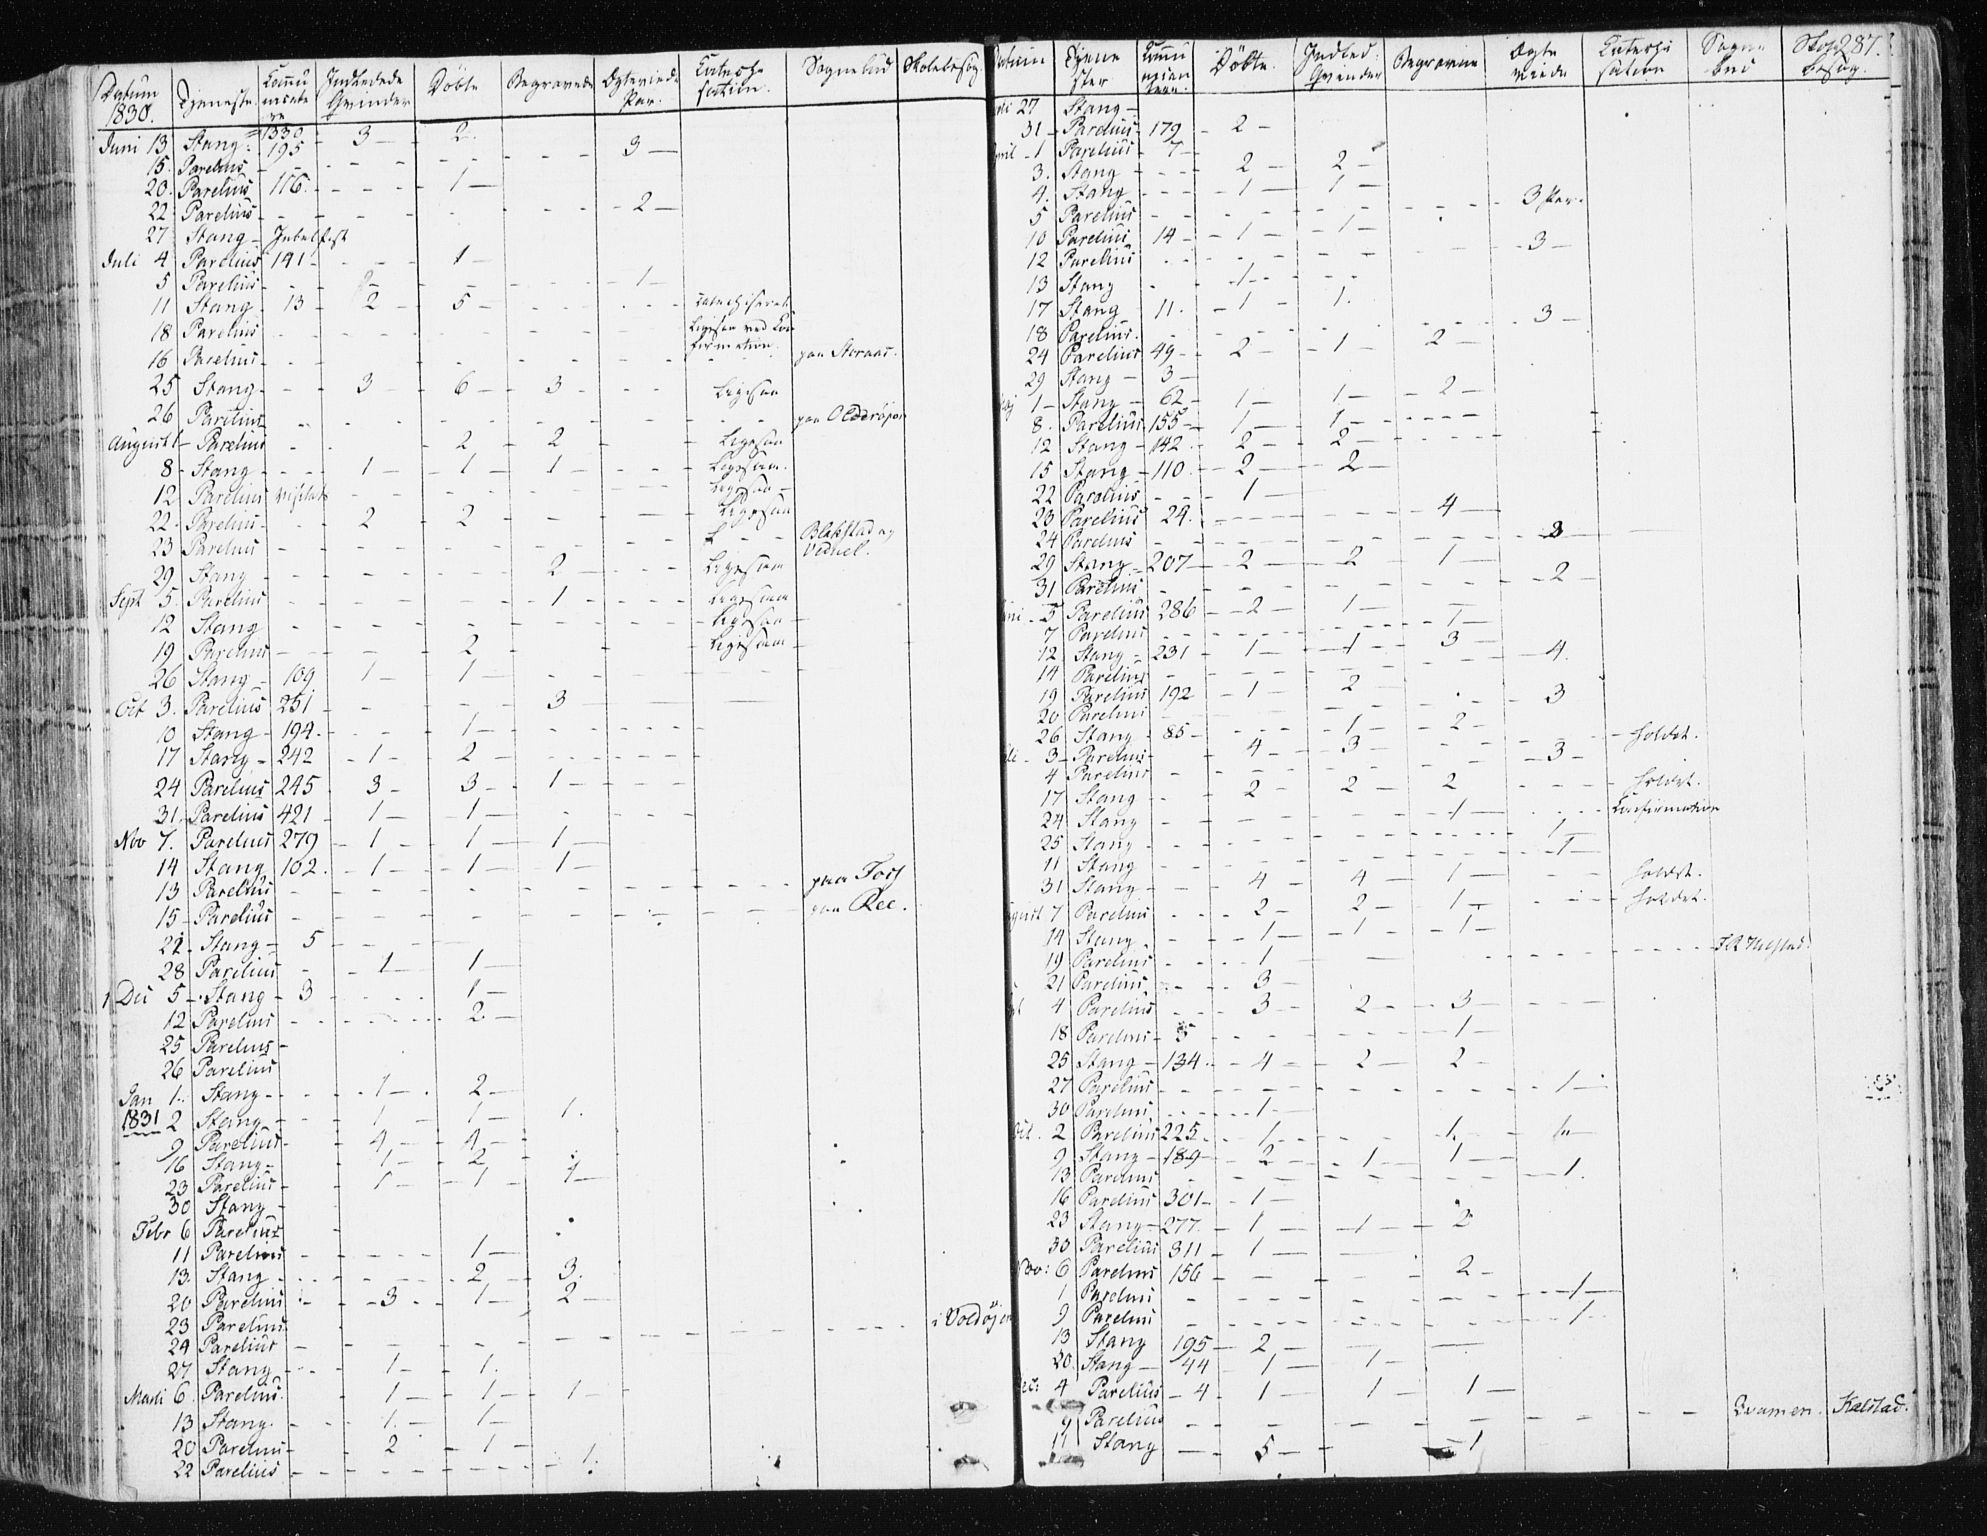 287.
Datum 1830. Tjeneste. Communicantere Indledede Qvinder Döbte Begravede Ægteviede Par. Catechesation. Sognebud Skolebesøg.
1330
Juni 13 Stang - 195 - 3 - 2
15. Parelius - 3 -
20. Parelius 116. - 1 -
22. Parelius - 2 -
27. Stang - Jubelfest
Juli 4 Parelius 141 - 1 -
5 Parelius - 1 -
11 Stang 13 - 2 - 5 - catechiserede
18 Parelius - Ligesaa ved Confirmation.
16 Parelius - paa Storaas.
25 Stang - 3 - 6 - 3 - Ligesaa
26 Parelius - paa Olderöien
August 1 - Parelius - 2 - 2 - Ligesaa
8 - Stang - 1 - 1 - 1 - Ligesaa.
12 Parelius visitats - Ligesaa -
22. Parelius - 2 - 2 - Ligesaa
23 Parelius - Blekstad og
29 Stang - 2 - Ligesaa
Sept 5. Parelius - 1 - Ligesaa
12 Stang - Ligesaa -
19 Parelius - 2 - Ligesaa -
26 Stang - 109 1 - 1 -
Oct 3. Parelius 251 - 3 -
10 Stang - 194 - 1 -
17 Stang - 242 - 1 - 2 -
24 Parelius 245 - 3 - 3 - 1 -
31. Parelius 421 - 1 - 1 -
Nov 7. Parelius 279 - 1 - 1 - 1 -
14 Stang 102. - 1 - 1 - 1 -
13 Parelius - paa Fos
15 - Parelius - paa Ree.
21 - Stang - 5 -
28 Parelius - 1 - 1 -
Dec 5 - Stang - 3 - 1 -
12 Parelius - 2 -
25 Parelius -
26 Parelius
Jan 1. Stang - 1 - 2 -
1831 2 Stang - 1 - 1 - 1.
9 Parelius - 4 - 4 -
16 Stang - 1 - 2 -
23 Parelius - 1 - 1 - 1 -
30 Stang -
Febr 6 Parelius
11 Parelius - 1 -
13. Stang - 2 - 3.
20 Parelius - 3 - 1 - 2 -
23 Parelius - i Voldöjen
24 Parelius -
27 Stang - 1 - 1.
Marti 6. Parelius. - 1 - 1 - 1 -
13 Stang. - 1 - 1 -
20 Parelius - 2 - 1 -
22 Parelius - 1.
Datum Tjenester Döbte. Indled: Qvinder Begravne Ægteviede Catechisation Sognebud Skolebesøg.
27 Stang -
31 - Parelius - 179 - 2 -
1 Parelius - 7 -
3. Stang - 2 - 2 -
4. Stang - 1 - 1 -
5 Parelius - 3 Par.
10 Parelius 14 - 1 - 1 -
12 Parelius - 3 -
13 Stang - 1 -
17 Stang 11. - 1 - 1.
18 Parelius. - 3 -
24 Parelius 49 - 2 - 1 - 2 -
29 Stang - 3 -
1 - Stang - 62 - 1 - 1 - 2 -
8. Parelius 155 - 1 - 1 -
12 Stang - 142 - 2 - 2 -
15 Stang - 110 - 2 - 2 -
22 Parelius - 1 -
23 Parelius 24. - 4 -
24 Parelius - 3 -
29 Stang - 207 - 2 - 2 - 1 -
31 Parelius - 2 -
5 Parelius 286 - 2 - 1 - 1 -
7 Parelius -
12 Stang - 231 - 1 - 1 - 3 -
14 Parelius - 4.
19 Parelius 192 - 1 - 2 -
20 Parelius - 3
26 Stang - 85 - 1 - 2 - holdet.
3 - Parelius - 4 - 3 -
4 Parelius - 3 -
17 Stang - 2 - 2 - 2 - holdet.
24 Stang - 1 - Confirmation
25 Stang - 1 -
11 Stang - 1 -
31 Stang - 4 - 4 - 1 - holdet.
August 7 Parelius - 2 - 2 - 1 - holdet.
14 Stang - 1 - 1 - 1 -
19 Parelius - 1 -
21 Parelius - 3 -
4 Parelius - 3 - 2 - 3 -
18 Parelius - 5 - 1 -
25 Stang - 134 - 4 - 2 - 2 -
27 Parelius - 1 -
30 Parelius - 1 -
Oct. 2 Parelius 225 - 1 - 1. - 1 -
9 Stang - 189 - 2 - 1 - 1 -
13 Parelius - 1.
16 Parelius 301 - 1 -
23 Stang - 277 - 1 - 1 - 2
30 Parelius 311 - 1 -
Nov: 6 Parelius 156 - 2 -
1 Parelius - 1 -
9 Parelius - 1 -
13 Stang 195 - 2 -
20. Stang - 44 1 - 1 -
4 Parelius - 4 - 1 - 1 - 1 -
9 Parelius - Qvamen. Kalstad.
11 Stang - 5 - 1